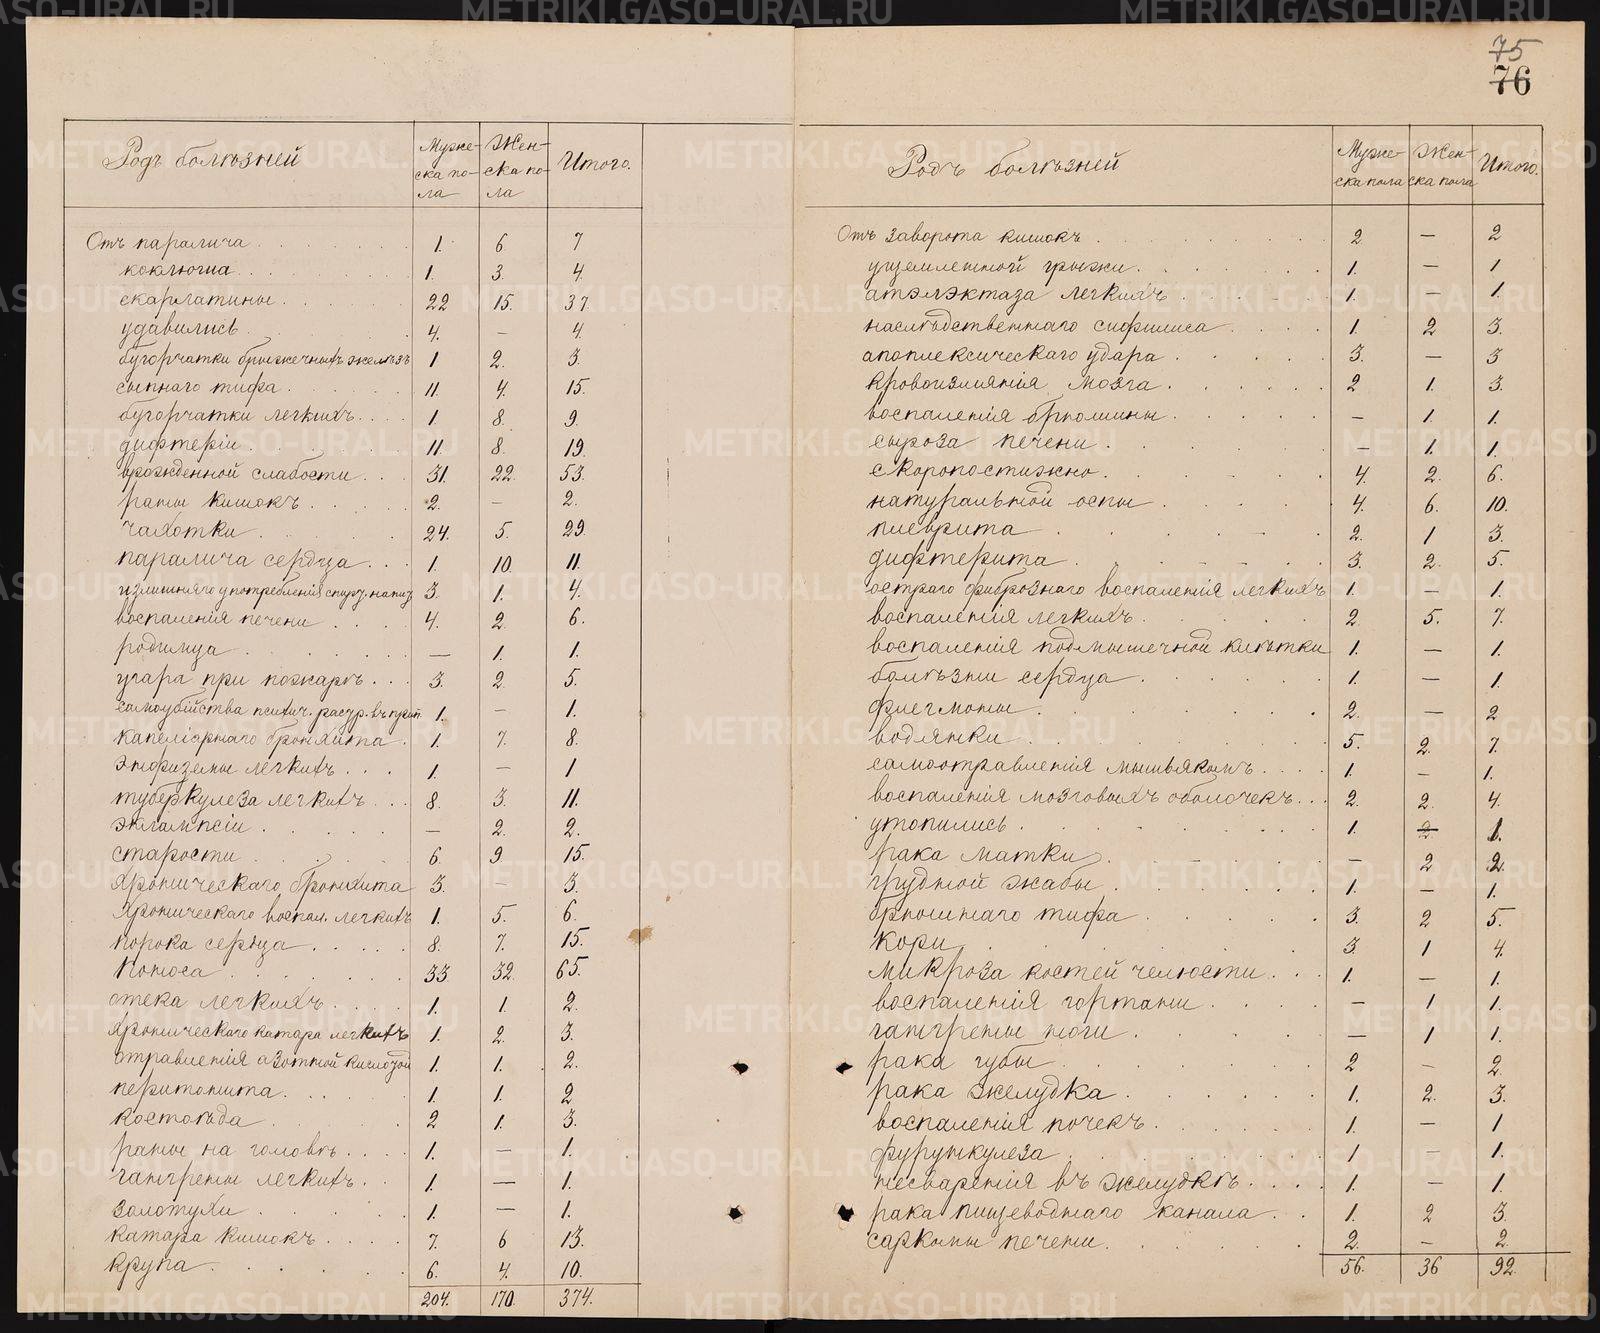 75
76
Родъ болѣзней Муже- Жен- Итого.
ска по- ска по-
ла ла
Отъ паралича 1. 6. 7
коклюша 1. 3. 4.
скарлатины 22 15. 37
удавились 4. — 4.
бугорчатки брыжечныхъ железъ 1 2. 3.
сыпнаго тифа 11. 4. 15.
бугорчатки легкихъ 1. 8. 9.
дифтеріи 11. 8. 19.
врожденной слабости 31. 22. 53.
раны кишокъ 2. — 2.
чахотки 24. 5. 29.
паралича сердца 1. 10. 11.
излишняго употребленія спирт. напит 3. 1. 4.
воспаленія печени 4. 2. 6.
родимца — 1. 1.
угара при пожарѣ 3. 2. 5.
самоубійства психич. 1. — 1.
капеліарнаго бронхита 1. 7. 8.
эмфиземы легкихъ 1. — 1
туберкулеза легкихъ 8. 3. 11.
эклампсіи — 2. 2.
старости 6. 9. 15.
хроническаго бронхита 3. — 3.
хроническаго воспал. легкихъ 1. 5. 6.
порока сердца 8. 7. 15.
поноса 33 32. 65.
отека легкихъ 1. 1. 2.
хроническаго катара легкихъ 1. 2. 3.
отравленія азотной кислотой 1. 1. 2.
перитонита 1. 1. 2
костоѣда 2 1. 3.
раны на головѣ 1. — 1.
гангрены легкихъ 1. — 1.
золотухи 1. — 1.
катара кишокъ 7. 6 13.
крупа 6. 4. 10.
204. 170. 374.
Родъ болѣзней Муже- Жен- Итого.
ска пола ска пола
Отъ заворота кишокъ 2 — 2
ущемленной грыжи 1. — 1
атэлэктаза легкихъ 1. — 1.
наслѣдственнаго сифилиса 1. 2 3.
апоплексическаго удара 3. — 3
кровоизліянія мозга 2 1. 3.
воспаленія брюшины — 1. 1.
сыроза печени — 1. 1.
скоропостижно 4. 2. 6.
натуральной оспы 4. 6. 10.
плеврита 2. 1 3.
дифтерита 3. 2. 5.
остраго фибрознаго воспаленія легкихъ 1. — 1.
воспаленія легкихъ 2. 5. 7.
воспаленія подмышечной клѣтки 1. — 1.
болѣзни сердца 1. — 1
флегмоны 2. — 2
водянки 5. 2. 7.
самоотравленія мышьякомъ 1. — 1.
воспаленія мозговыхъ оболочекъ 2. 2. 4.
утопились 1. — 1.
рака матки — 2 2.
грудной жабы 1. — 1.
брюшнаго тифа 3. 2 5.
кори 3. 1 4.
микроза костей челюсти 1. — 1.
воспаленія гортани — 1 1.
гангрены ноги — 1 1.
рака губы 2 — 2.
рака желудка 1. 2. 3.
воспаленія почекъ 1. — 1
фурункулеза 1 — 1.
несваренія въ желудкѣ 1. — 1.
рака пищеводнаго канала 1. 2 3.
саркомы печени 2. — 2.
56. 36 92.
METRIKI.GASO-URAL.RU